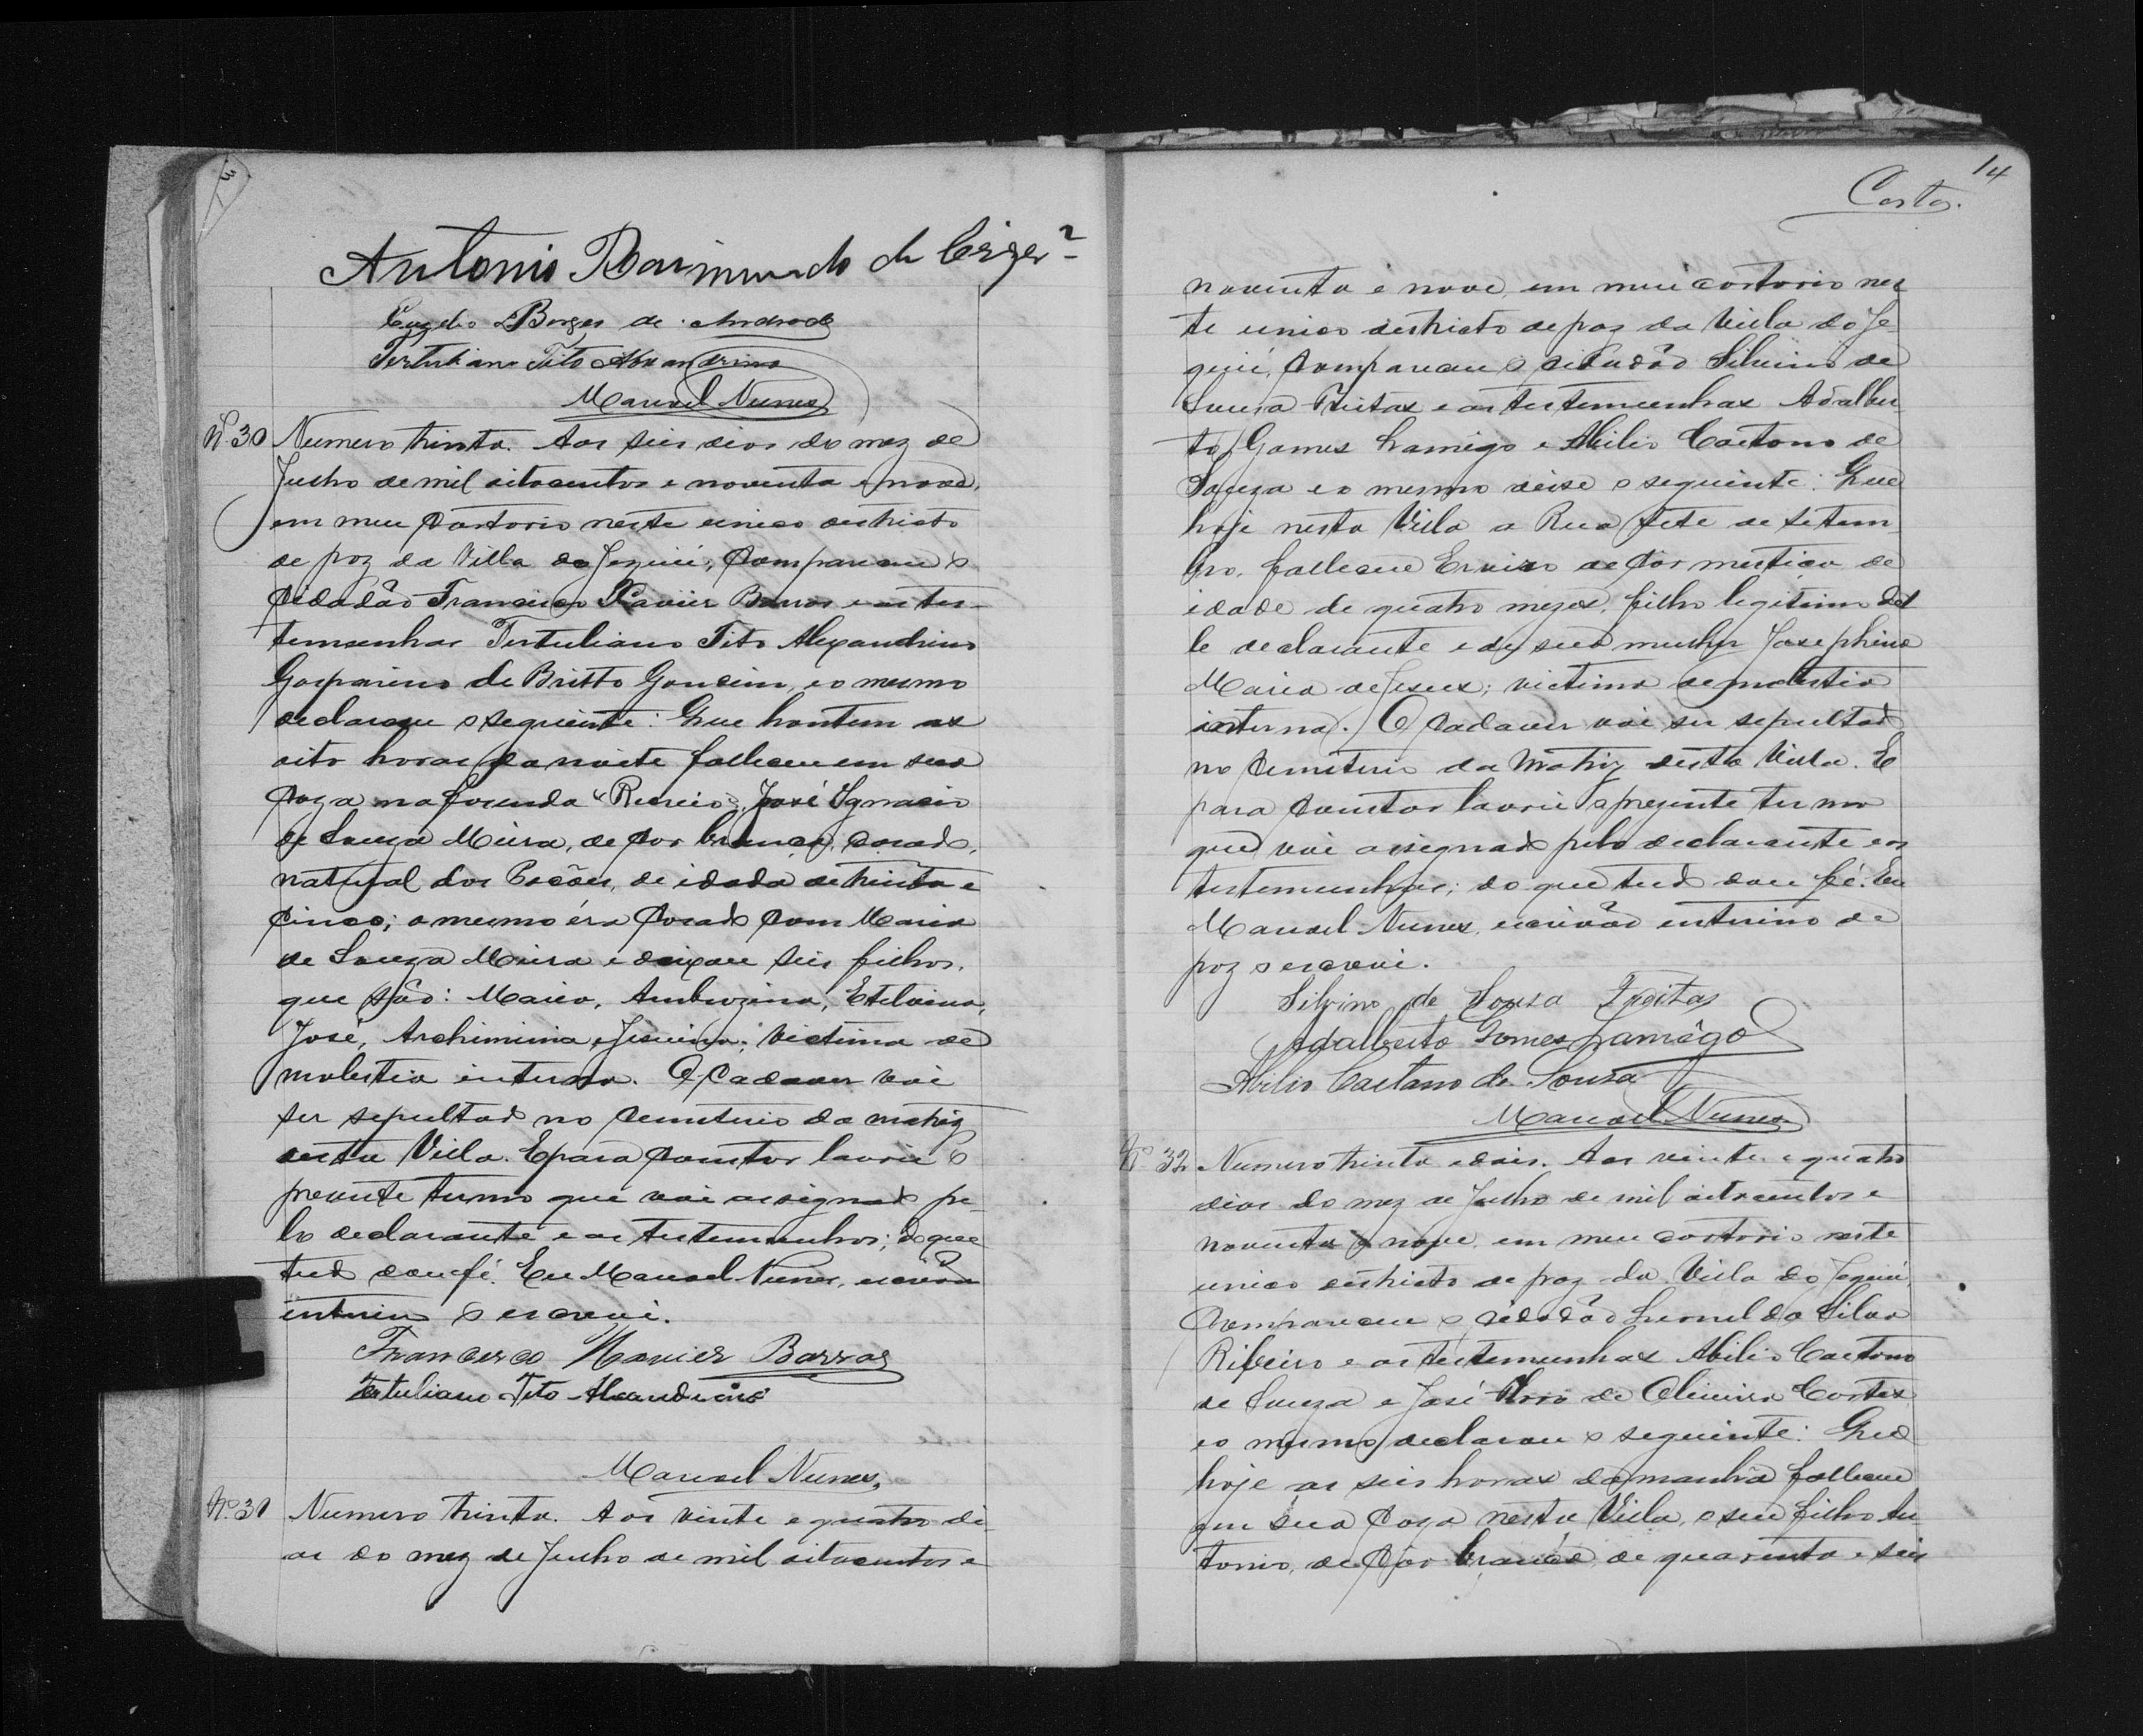 Antonio Raimundo de
Borges de Andrade
Tertuliano Tito Alexandrino
Manoel Nunes
Nº 30 Numero trinta. Aos seis dias do mez de
Julho de mil oitocentos e noventa e nove,
em meu Cartorio neste unico districto
de paz da Villa de Jequié, Compareceu o
Cidadão Francisco Xavier Barros e as tes-
temunhas Tertuliano Tito Alexandrino
Gasparino de Britto Gondim, e o mesmo
declarou o seguinte: Que hontem as
oito horas da noite falleceu em sua
Caza na fazenda "Recreio", José Ignacio
de Souza Meira, de Cor branca, casado,
natural dos Poções, de idade de trinta e
Cinco; o mesmo éra Casado com Maria
de Souza Meira e deixou seis filhos,
que são: Maria, Ambrozina, Etelvina,
José, Archimina e Jesuina; victima de
molestia interna. O Cadaver vai
ser sepultado no Cemiterio da matriz
desta Villa. E para Constar lavrei o
presente termo que vai assignado pe-
lo declarante e as testemunhas; do que
tudo dou fé. Eu Manoel Nunes, escrivão
interino o escrevi.
Francisco Xavier Barros
Tertuliano Tito Alexandrino
Manoel Nunes,
Nº 31 Numero trinta. Aos vinte e quatro di-
as do mez de Julho de mil oitocentos e
14
noventa e nove, em meu cartorio nes
te unico districto de paz da Villa do Je
quié, Compareceu o cidadão Silvino de
Souza Freitas e as testemunhas Adalber
to Gomes Lamêgo e Abilio Caetano de
Souza e o mesmo disse o seguinte: Que
hoje nesta Villa a Rua Sete de Setem
bro, falleceu de Cor mestiça de
idade de quatro mezes, filho legitimo del
le declarante e de sua mulher Josephina
Maria de Jesus; victima de molestia
interna. O Cadaver vai ser sepultado
no Cemiterio da Matriz desta Villa. E
para Constar lavrei o prezente termo
que vai assignado pelo declarante e as
testemunhas; do que tudo dou fé. Eu
Manoel Nunes, escrivão interino de
paz o escrevi.
Silvino de Sousa Freitas
Adalberto Gomes Lamêgo
Abilio Caetano de Sousa
Manoel Nunes
Nº 32 Numero trinta e dois. Aos vinte e quatro
dias do mez de Julho de mil oitocentos e
noventa e nove, em meu cartorio neste
unico districto de paz da Villa do Jequié,
Compareceu o cidadão da Silva
Ribeiro e as testemunhas Abilio Caetano
de Souza e José de Oliveira Cortes
e o mesmo declarou o seguinte: Que
hoje as seis horas da manhã falleceu
em sua Caza nesta Villa, o seu filho An
tonio, de Cor branca de quarenta e seis